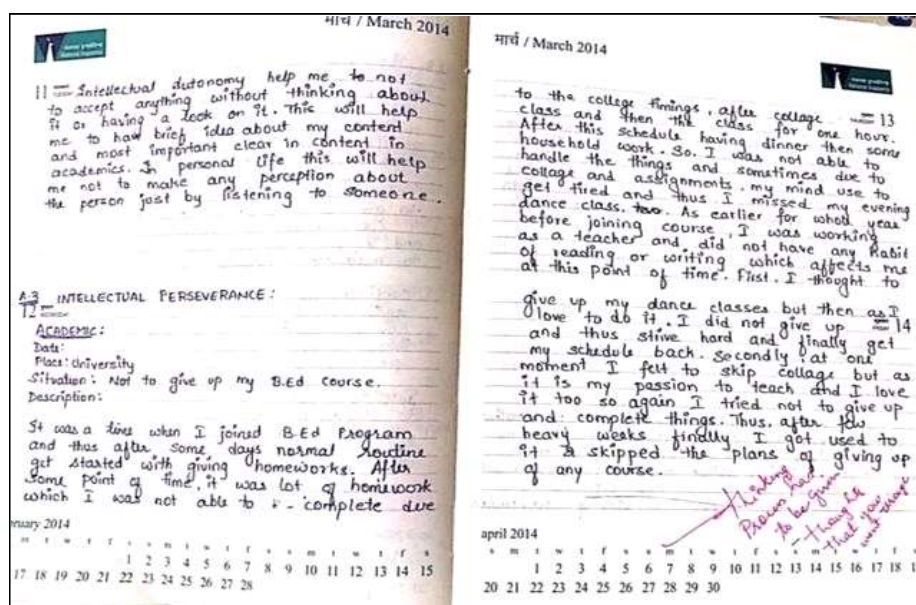 मार्च / March 2014
11
Intellectual Autonomy help me to not
to accept anything without thinking about
it or having a look on it. This will help
me to have brief idea about my content
and most important clear in content in
academics. In personal life this will help
me not to make any perception about
the person just by listening to someone.
A-3 INTELLECTUAL PERSEVERANCE:
12
ACADEMIC:
Date:
Place: University
Situation: Not to give up my B.Ed course.
Description:
It was a time when I joined B.Ed Program
and thus after some days normal routine
get started with giving homeworks. After
some point of time, it was lot of homework
which I was not able to complete due
ruary 2014
m t w t f s s m t w t f s s m t w t f s
1 2 3 4 5 6 7 8 9 10 11 12 13 14 15
17 18 19 20 21 22 23 24 25 26 27 28
मार्च / March 2014
to the college timings, after collage 13
class and then the class for one hour.
After this schedule having dinner then some
household work. So, I was not able to
handle the things and sometimes due to
collage and assignments, my mind use to
get tired and thus I missed my evening
dance class. As earlier for whole year
before joining course, I was working
as a teacher and did not have any habit
of reading or writing which affects me
at this point of time. First, I thought to
give up my dance classes but then as I
love to do it. I did not give up 14
and thus strive hard and finally get
my schedule back. Secondly, at one
moment I felt to skip collage but as
it is my passion to teach and I love
it too so again I tried not to give up
and complete things. Thus, after few
heavy weeks finally I got used to
it & skipped the plans of giving up
of any course.
Thinking
Process had
to be given
- thought
that you
went through
april 2014
1 2 3 4 5 6 7 8 9 10 11 12 13 14 15 16 17 18
20 21 22 23 24 25 26 27 28 29 30